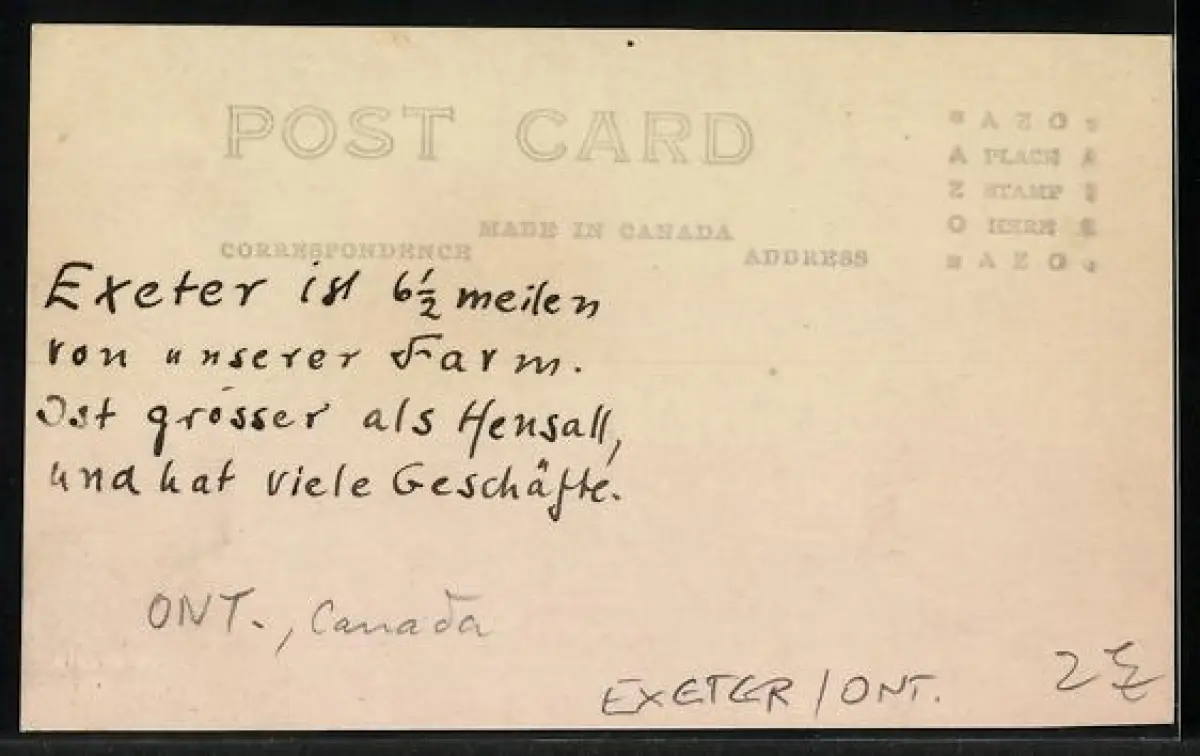 POST CARD
MADE IN CANADA
CORRESPONDENCE
ADDRESS
AZO
A PLACE A
Z STAMP Z
O HERE O
AZO
Exeter ist 6½ meilen
von unserer Farm.
Ist grösser als Hensall,
und hat viele Geschäfte.
ONT., Canada
EXETER / ONT.
2